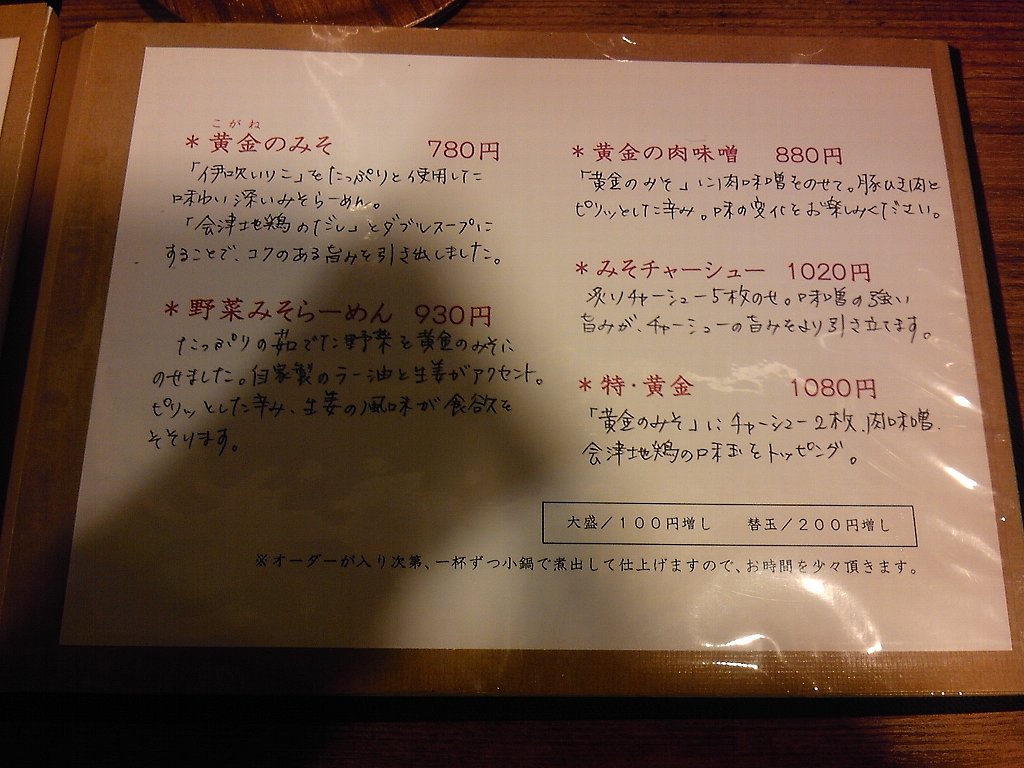 こがね
＊黄金のみそ　780円
「伊吹いりこ」をたっぷりと使用した
味わい深いみそらーめん。
「会津地鶏のだし」とダブルスープに
することで、コクのある旨みを引き出しました。
＊野菜みそらーめん　930円
たっぷりの茹でた野菜を黄金のみそに
のせました。自家製のラー油と生姜がアクセント。
ピリッとした辛み、生姜の風味が食欲を
そそります。
＊黄金の肉味噌　880円
「黄金のみそ」に肉味噌をのせて。豚ひき肉と
ピリッとした辛み。味の変化をお楽しみください。
＊みそチャーシュー　1020円
炙りチャーシュー5枚のせ。味噌の強い
旨みが、チャーシューの旨みをより引き立てます。
＊特・黄金　1080円
「黄金のみそ」にチャーシュー2枚、肉味噌、
会津地鶏の味玉をトッピング。
大盛／１００円増し　替玉／２００円増し
※オーダーが入り次第、一杯ずつ小鍋で煮出して仕上げますので、お時間を少々頂きます。